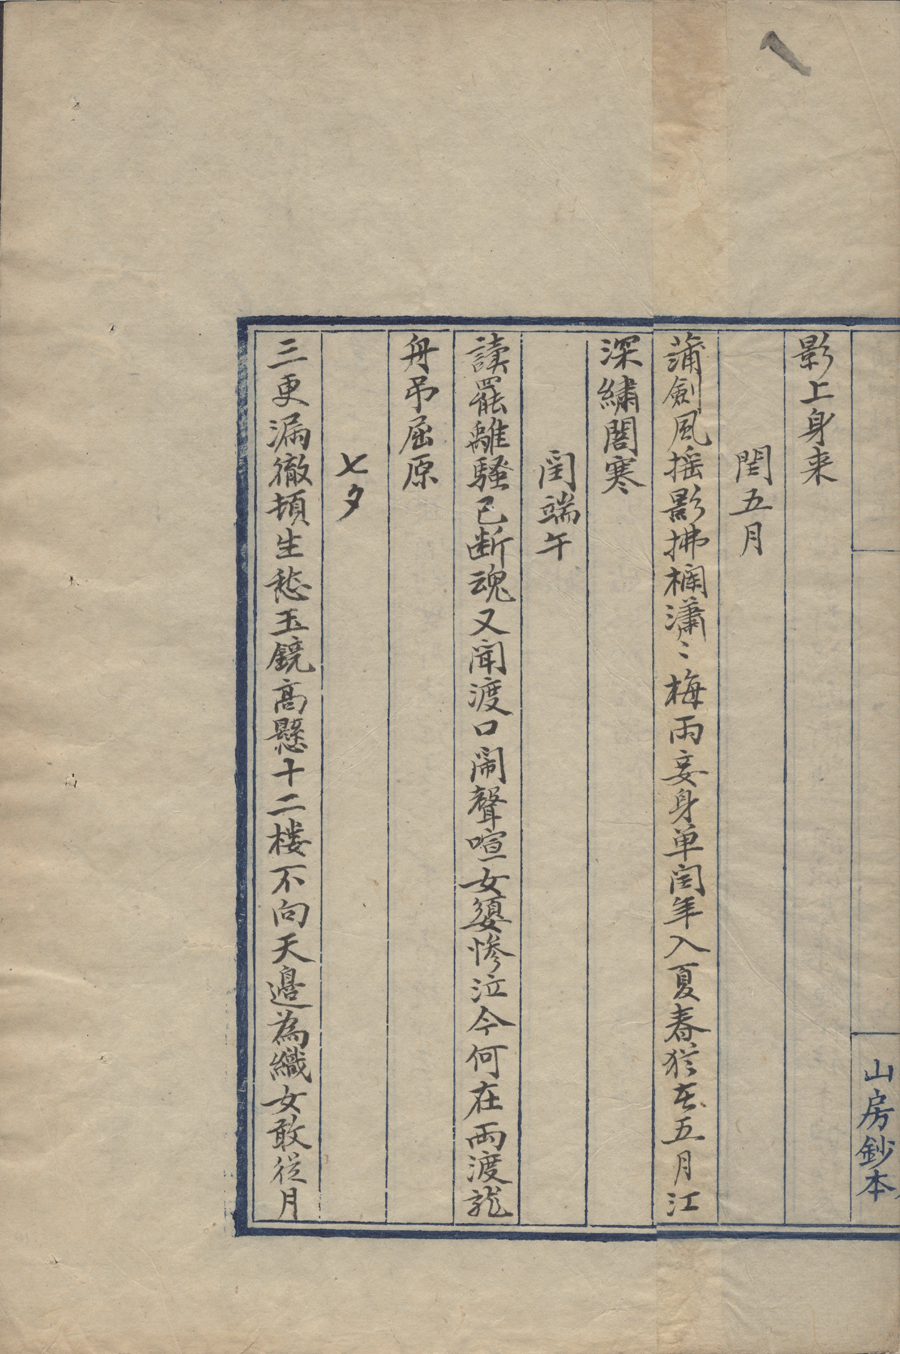 影上身来
閏五月
蒲劍風揺影拂欄瀟〻梅雨妾身单閏年入夏春猶在五月江
深繡閣寒
閏端午
讀罷離騷已断魂又聞渡口鬧聲喧女嬃惨泣今何在兩渡龍
舟吊屈原
七夕
三更漏徹頓生愁玉鏡高懸十二楼不向天邉為織女敢從月
山房鈔本